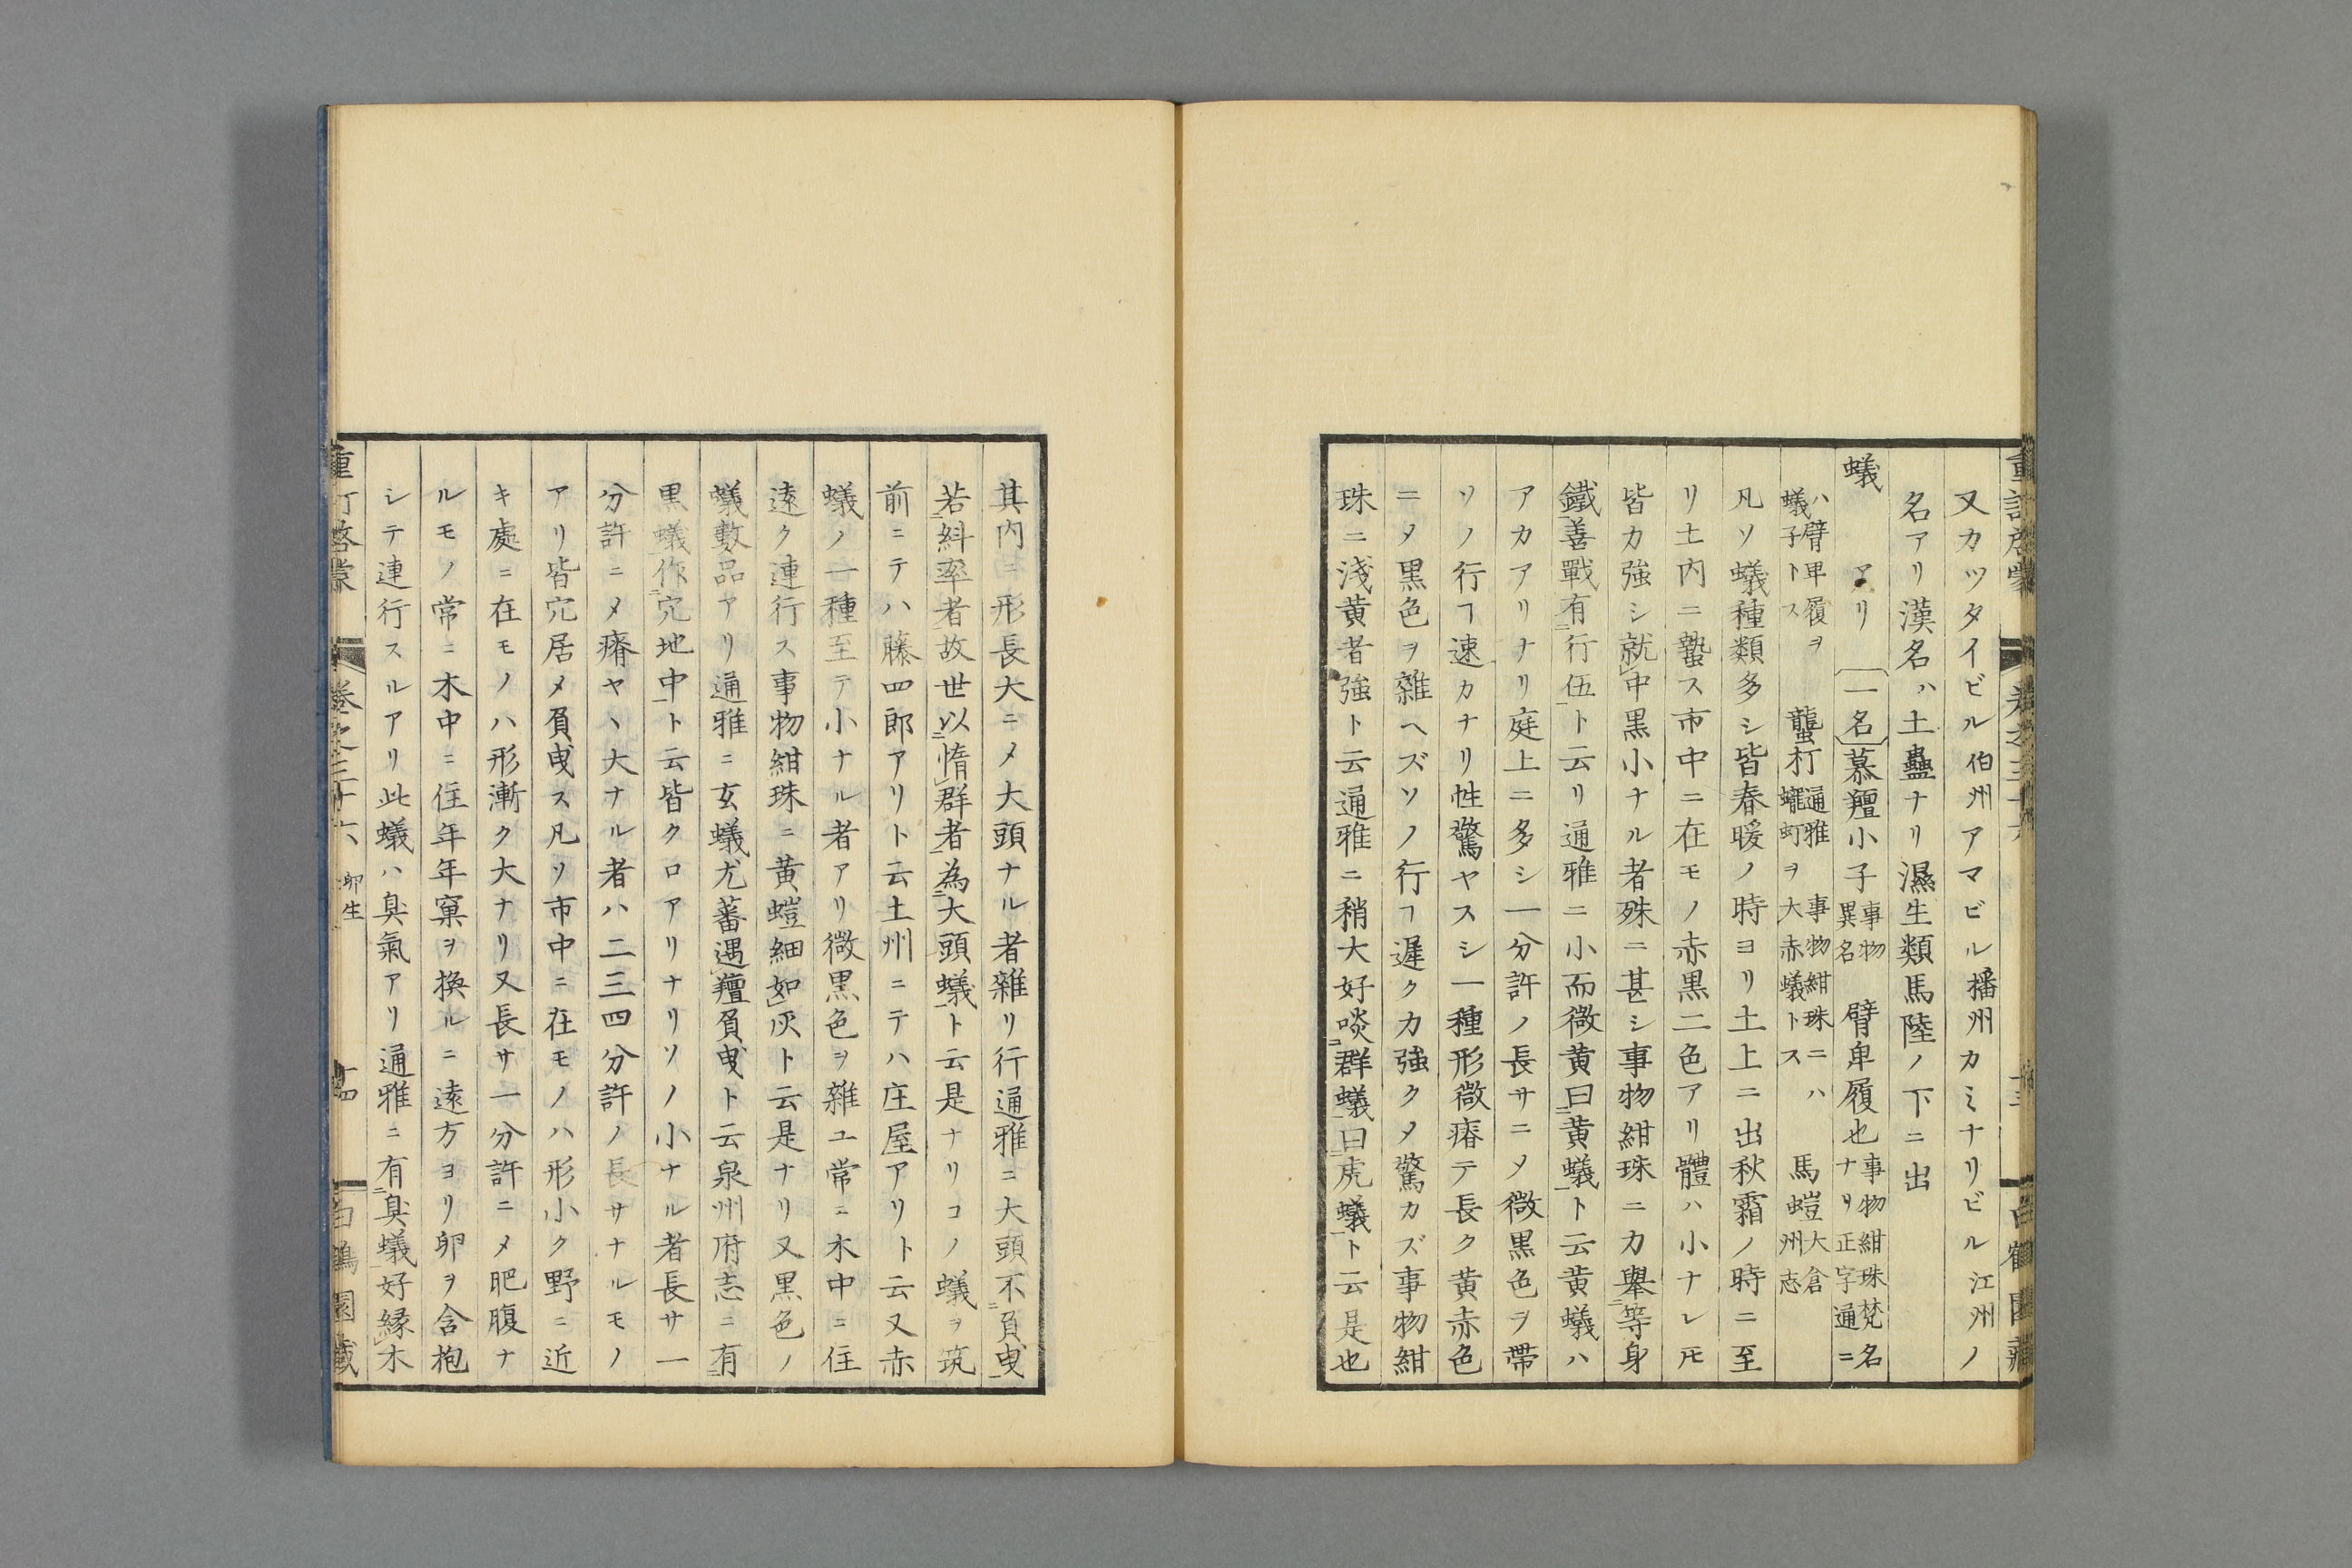 又カツタイビル伯州アマビル播州カミナリビル江州ノ
名アリ漢名ハ土蠱ナリ濕生類馬陸ノ下ニ出
蟻 アリ 〔一名〕慕羶小子事物異名 臂卑履也事物紺珠梵名ナリ正字通ニ
ハ臂卑履ヲ蟻子トス 蠪朾通雅蠬虰ヲ 事物紺珠ニハ大赤蟻トス 馬螘大倉州志
凡ソ蟻種類多シ皆春暖ノ時ヨリ土上ニ出秋霜ノ時ニ至
リ土内ニ蟄ス市中ニ在モノ赤黒二色アリ體ハ小ナレ𪜈
皆カ強シ就中黒小ナル者殊ニ甚シ事物紺珠ニカ舉等身
鐵善戰有行伍ト云リ通雅ニ小而微黄曰黄蟻ト云黄蟻ハ
アカアリナリ庭上ニ多シ一分許ノ長サニメ微黒色ヲ帶
ソノ行ヿ速カナリ性驚ヤスシ一種形微瘠テ長ク黄赤色
ニメ黒色ヲ雜ヘズソノ行ヿ遲クカ強クメ驚カズ事物紺
珠ニ淺黄者強ト云通雅ニ稍大好啖群蟻曰虎蟻ト云是也
其内ニ形長大ニメ大頭ナル者雜リ行通雅ニ大頭不負曳
若糾率者故世以惰群者為大頭蟻ト云是ナリコノ蟻ヲ筑
前ニテハ藤四郎アリト云土州ニテハ庄屋アリト云又赤
蟻ノ一種至テ小ナル者アリ微黒色ヲ雜ユ常ニ木中ニ住
遠ク連行ス事物紺珠ニ黄螘細如灰ト云是ナリ又黒色ノ
蟻數品アリ通雅ニ玄蟻尤蕃遇羶負曳ト云泉州府志ニ有
黒蟻作穴地中ト云皆クロアリナリソノ小ナル者長サ一
分許ニメ瘠ヤヽ大ナル者ハ二三四分許ノ長サナルモノ
アリ皆穴居メ負曳ス凡ソ市中ニ在モノハ形小ク野ニ近
キ處ニ在モノハ形漸ク大ナリ又長サ一分許ニメ肥腹ナ
ルモノ常ニ木中ニ住年年窠ヲ換ルニ遠方ヨリ卵ヲ含抱
シテ連行スルアリ此蟻ハ臭氣アリ通雅ニ有臭蟻好縁木
重訂啓蒙 卷之三十六 卵生 十四 白鶴園藏